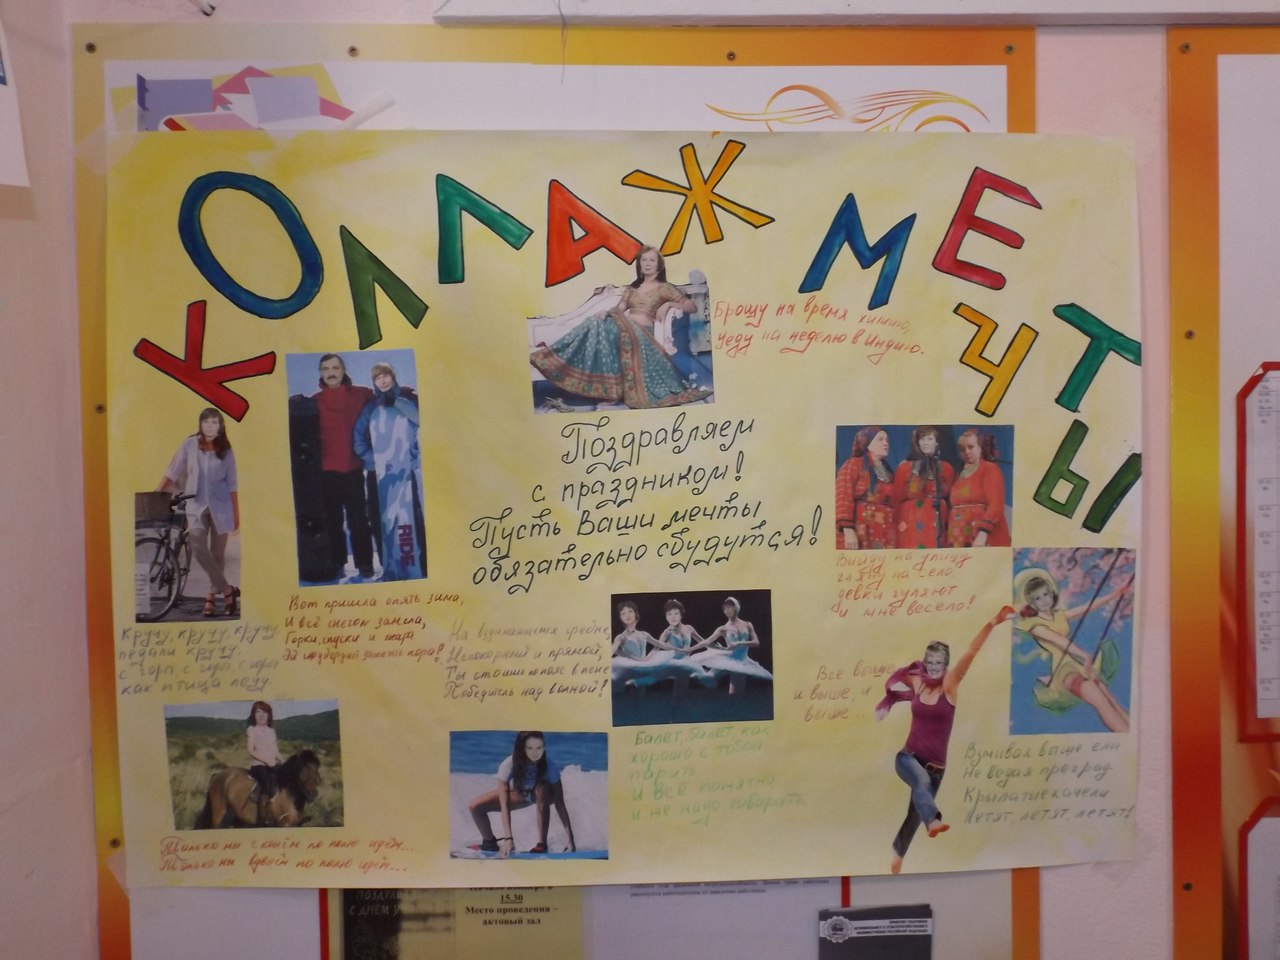 КОЛЛАЖ МЕЧТЫ
Брошу на время химию,
уеду на неделю в Индию.
Поздравляем
с праздником!
Пусть Ваши мечты
обязательно сбудутся!
Выйду на улицу
гляну на село,
девки гуляют
и мне весело!
Вот пришла опять зима,
И всё снегом занесла,
Горки, спуски и гора
Эй сноуборд
пора!
Кручу, кручу, кручу
педали кручу,
с горы, с горы, с горы
как птица лечу.
На вздымающемся гребне,
Непокорный и прямой,
Ты стоишь по пояс в пене
Победитель над волной!
RIDE
Балет, балет, как
хорошо с тобой
парить
И всё понятно
и не надо говорить
Всё выше
и выше, и
выше...
Взмывая выше ели
Не ведая преград
Крылатые качели
Летят, летят, летят!
Только мы с конём по полю идём...
Только мы вдвоём по полю идём...
Начало концерта в
15.30
Место проведения –
актовый зал